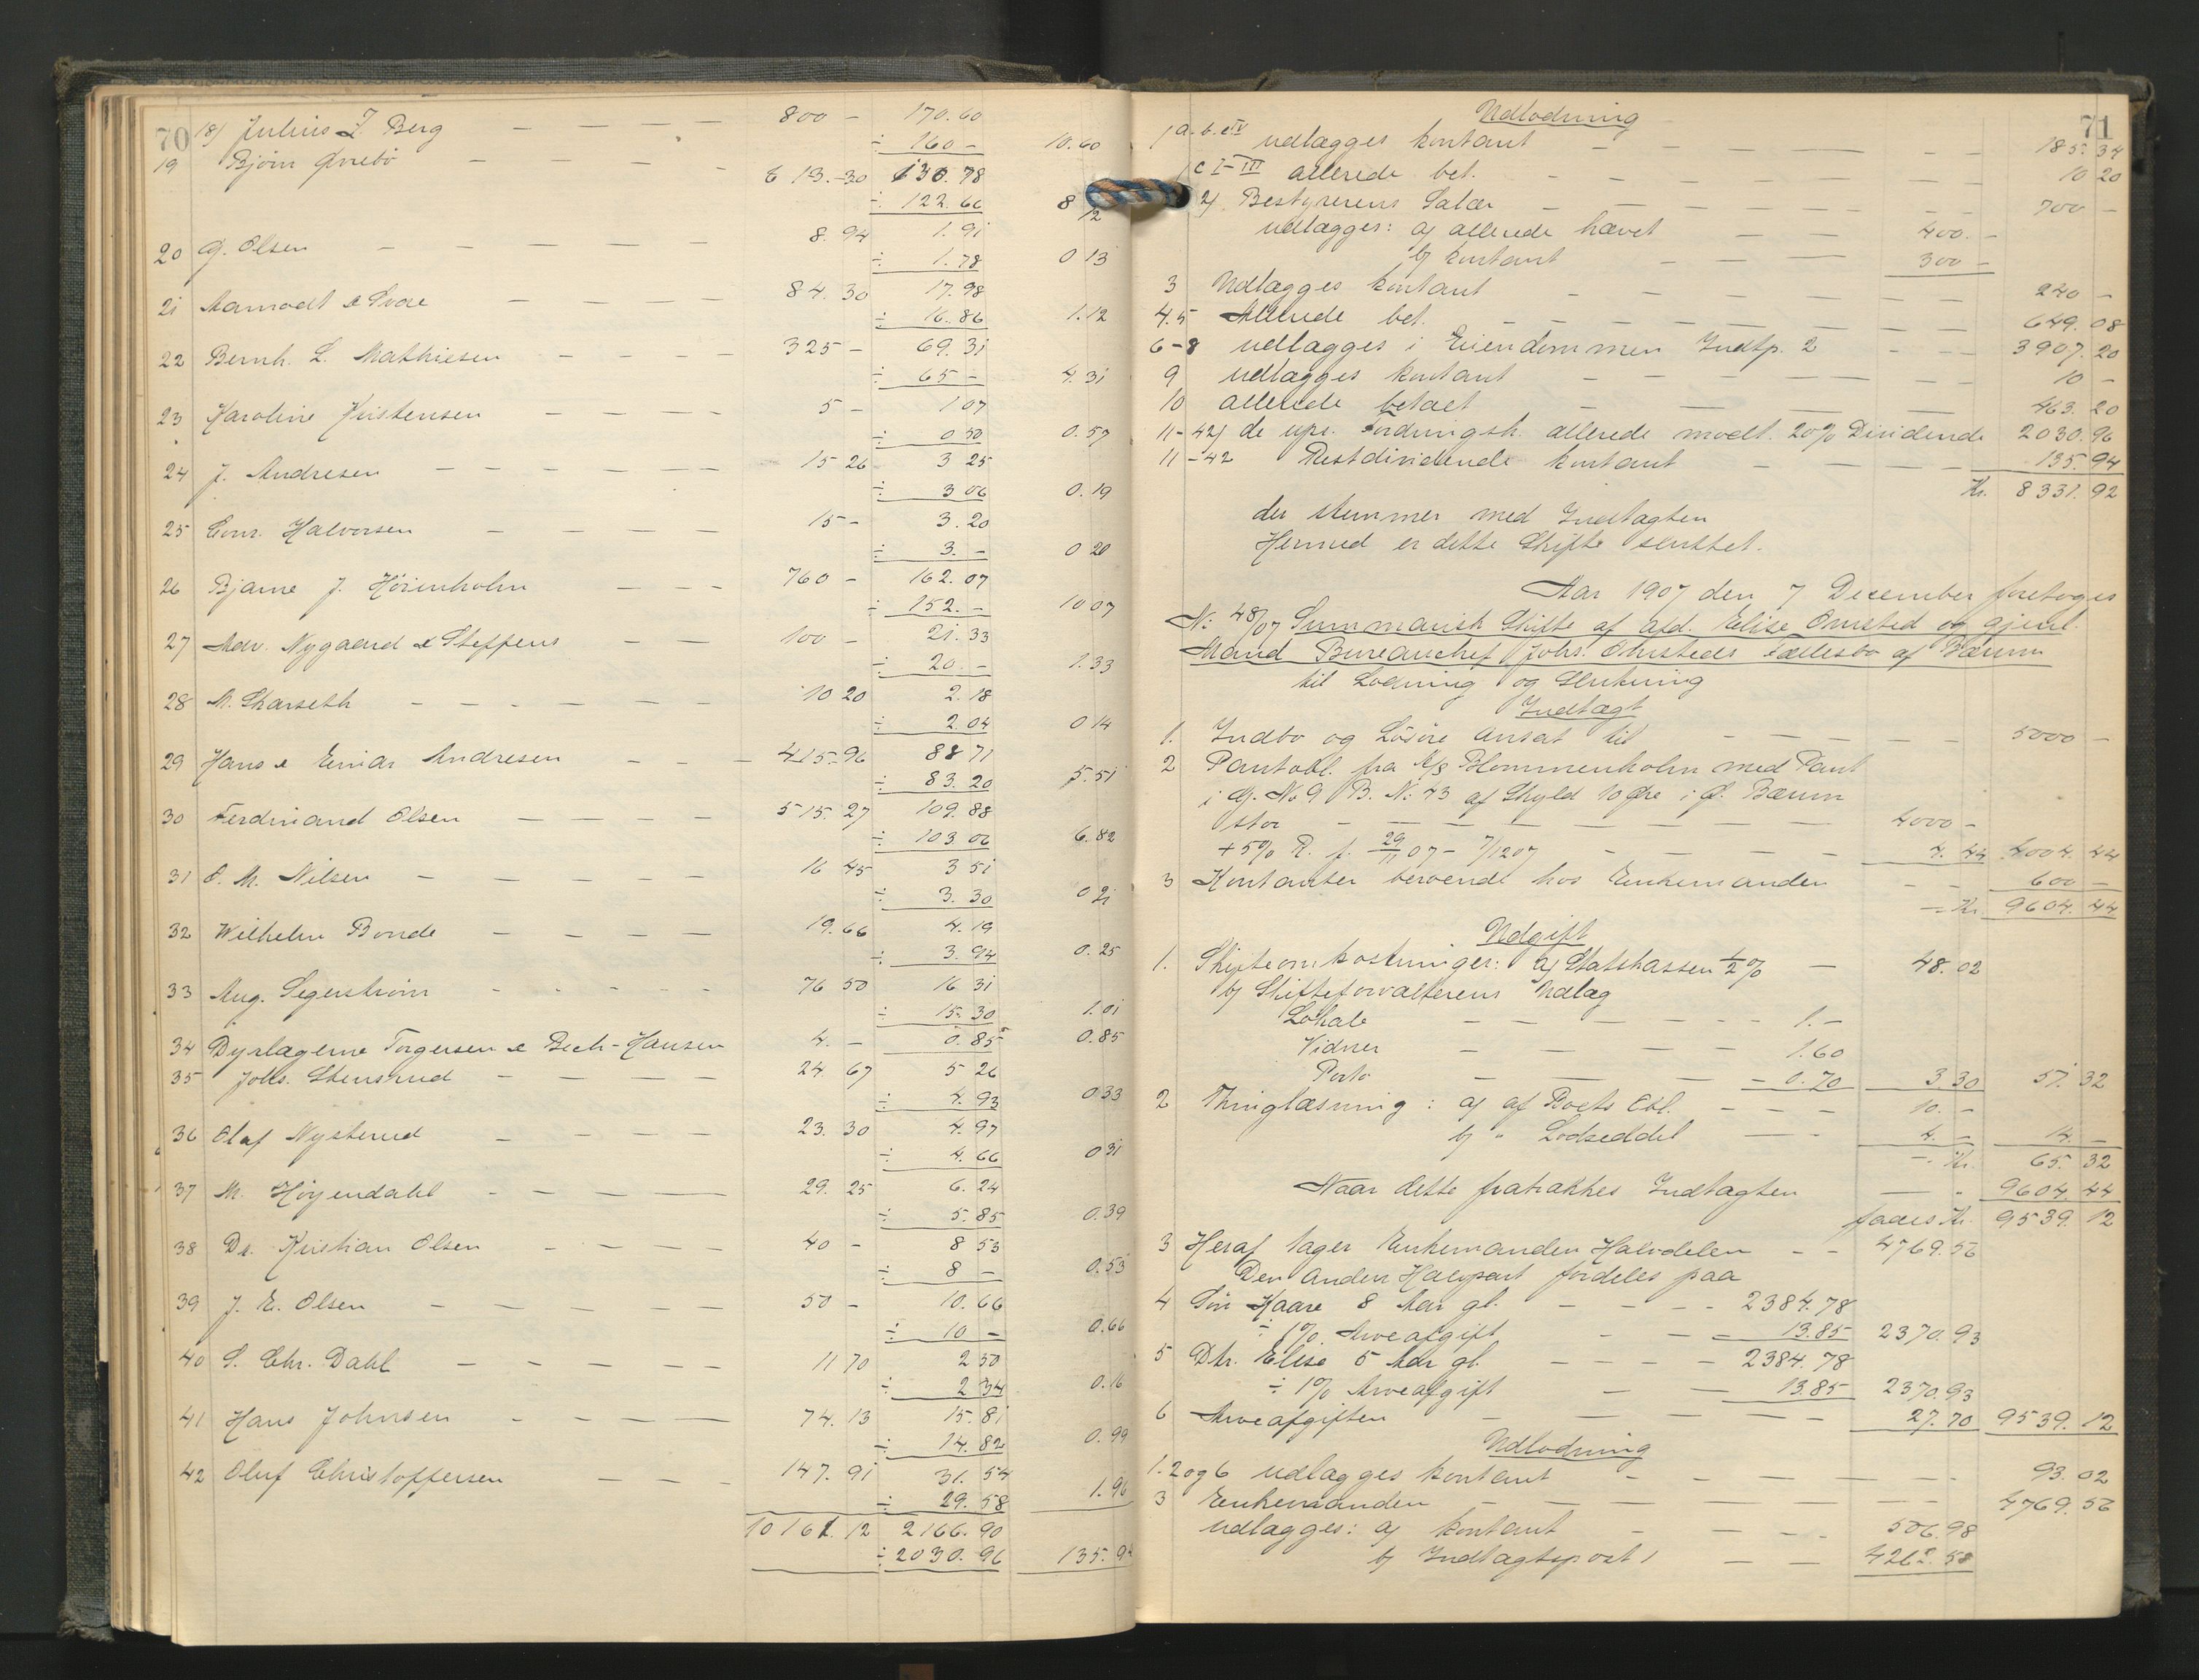 70
18) Julius Z. Berg — — — — 800 - 170.60
÷ 160 - 10.60
19 Bjørn Ørnebø — — — — 613.30 130.78
÷ 122.66 8 12
20 G. Olsen — — — — 8.94 1.91
÷ 1.78 0 13
21 Aamodt & Svare — — — — 84.30 17.98
÷ 16.86 1.12
22 Bernh. L. Mathiesen — — — — 325 - 69.31
÷ 65 - 4.31
23 Karoline Kristensen — — — — 5 - 1 07
÷ 0 50 0.57
24 J. Andresen — — — — 15 26 3 25
÷ 3 06 0.19
25 Halvorsen — — — — 15 - 3.20
÷ 3. - 0 20
26 Bjarne J. Hörenholm — — — 760 - 162.07
÷ 152. - 10 07
27 Adv. Nygaard & Steffens — — 100 - 21.33
÷ 20. - 1.33
28 M. Skarseth — — — — 10 20 2.18
÷ 2.04 0 14
29 Hans & Einar Andresen — — — 415.96 88 71
÷ 83.20 5.51
30 Ferdinand Olsen — — — — 515.27 109.88
÷ 103.06 6.82
31 O. M. Nilsen — — — — 16 45 3 51
÷ 3.30 0 21
32 Wilhelm Bonde — — — — 19.66 4.19
÷ 3.94 0.25
33 Aug. Segerström — — — — 76 50 16 31
÷ 15.30 1.01
34 Dyrlægerne Torgersen & Bech-Hansen 4. - 0.85 0.85
35 Johs. Stensrud — — — — 24.67 5 26
÷ 4.93 0 33
36 Olaf Nysterud — — — — 23.30 4.97
÷ 4.66 0 31
37 M. Høyendahl — — — — 29.25 6.24
÷ 5.85 0.39
38 Dr. Kristian Olsen — — — — 40 - 8 53
÷ 8 - 0.53
39 J. E. Olsen — — — — 50 - 10.66
÷ 10 - 0.66
40 S. Chr. Dahl — — — — 11 70 2 50
÷ 2 34 0.16
41 Hans Johnsen — — — — 74.13 15.81
÷ 14.82 0.99
42 Oluf Christoffersen — — — 147.91 31.54
÷ 29.58 1.96
10161.12 2166.90
÷ 2030.96 135.94
71
Udlodning
1 a. b. c IV udlægges kontant — — — — 185.34
1 c I-III allerede bet. — — — — 10 20
2) Bestyrerens Salær — — — — 700 -
udlægges: a) allerede hævet — — 400. -
b) kontant — — — 300 -
3 Udlægges kontant — — — — 240 -
4.5 Allerede bet. — — — — 649.08
6-8 udlægges i Eiendommen Indtp. 2 — — 3907.20
9 udlægges kontant — — — — 10 -
10 allerede betalt — — — — 463.20
11-42) de upr. Fordringsh. allerede modt. 20% Dividende 2030.96
11-42 Restdividende kontant — — — 135.94
Kr. 8331.92
der stemmer med Indtægten
Hermed er dette Skifte sluttet.
Aar 1907 den 7 December foretoges
No 48/07 Summarisk Skifte af afd. Elise Omsted og gjenl.
Mand Bureauchef Johs. Omsteds Fællesbo af Bærum
til Lodning og Slutning
Indtægt
1. Indbo og Lösöre ansat til — — — — 5000 -
2 Pantobl. fra A/S Blommenholm med Pant
i G. No 9 B. No 73 af Skyld 10 Øre i Ø. Bærum
stor — — — — 4000 -
+ 5% R. f. 29/11 07 - 7/12 07 — — — 4.44 4004.44
3 Kontanter beroende hos Enkemanden — — 600 -
= Kr. 9604.44
Udgift
1. Skifteomkostninger: a) Statskassen ½% — 48.02
b) Skifteforvalterens Udlæg
Lokale — — — 1. -
Vidner — — — 1.60
Porto — — — 0.70 3.30 51.32
2 Thinglæsning: a) af Boets Obl. — — — 10. -
b) " Lodseddel — — 4. - 14. -
= Kr. 65.32
Naar dette fratrækkes Indtægten — " 9604.44
faaes Kr. 9539.12
3 Heraf tager Enkemanden Halvdelen — — 4769.56
Den anden Halvpart fordeles paa
4 Søn Kaare 8 Aar gl. — — — 2384.78
÷ 1% Arveafgift — — 13.85 2370.93
5 Dtr. Elise 5 Aar gl. — — — 2384.78
÷ 1% Arveafgift — — 13.85 2370.93
6 Arveafgiften — — — — 27.70 9539.12
Udlodning
1.2 og 6 udlægges kontant — — — — 93.02
3 Enkemanden — — — — 4769.56
udlægges: a) kontant — — — 506.98
b) Indtægtspost 1 — — 4262.58